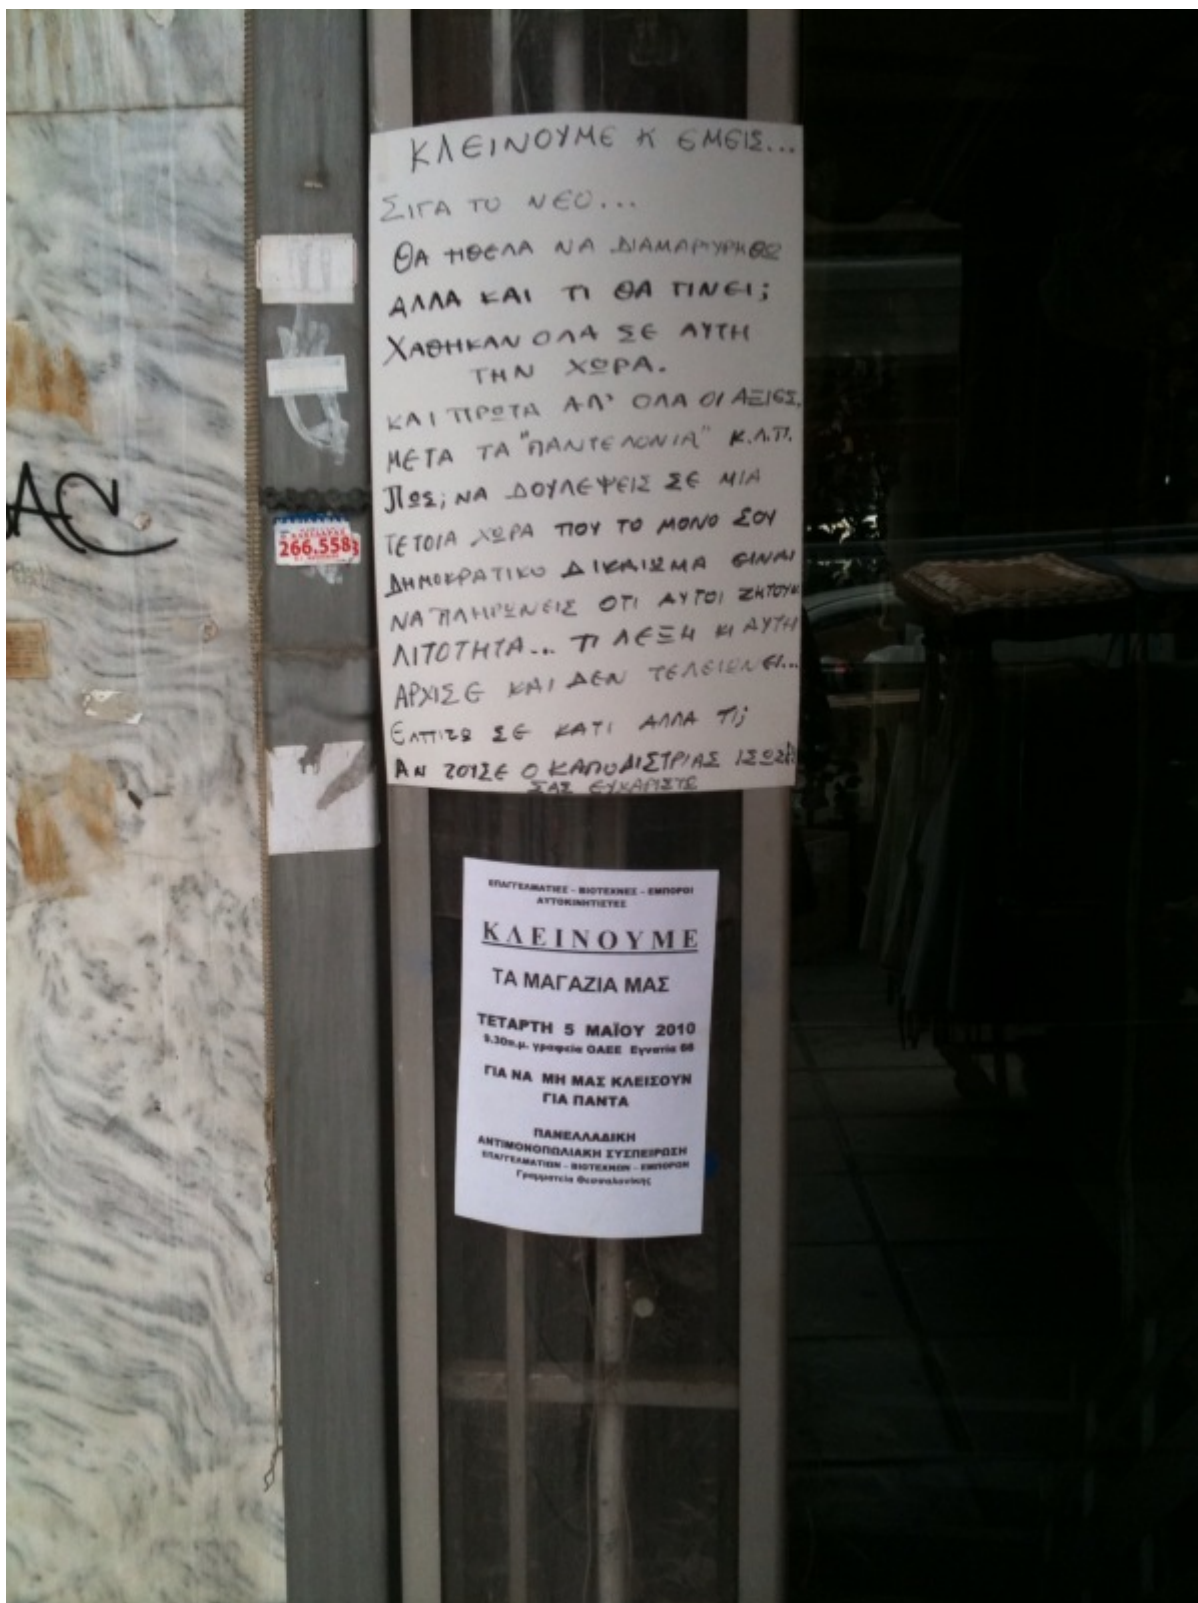 ΚΛΕΙΝΟΥΜΕ Κ ΕΜΕΙΣ...
ΣΙΓΑ ΤΟ ΝΕΟ...
ΘΑ ΗΘΕΛΑ ΝΑ ΔΙΑΜΑΡΤΥΡΗΘΩ
ΑΛΛΑ ΚΑΙ ΤΙ ΘΑ ΓΙΝΕΙ;
ΧΑΘΗΚΑΝ ΟΛΑ ΣΕ ΑΥΤΗ
ΤΗΝ ΧΩΡΑ.
ΚΑΙ ΠΡΩΤΑ ΑΠ' ΟΛΑ ΟΙ ΑΞΙΕΣ.
ΜΕΤΑ ΤΑ "ΠΑΝΤΕΛΟΝΙΑ" Κ.Λ.Π.
ΠΩΣ; ΝΑ ΔΟΥΛΕΨΕΙΣ ΣΕ ΜΙΑ
ΤΕΤΟΙΑ ΧΩΡΑ ΠΟΥ ΤΟ ΜΟΝΟ ΣΟΥ
ΔΗΜΟΚΡΑΤΙΚΟ ΔΙΚΑΙΩΜΑ ΕΙΝΑΙ
ΝΑ ΠΛΗΡΩΝΕΙΣ ΟΤΙ ΑΥΤΟΙ ΖΗΤΟΥΝ
ΛΙΤΟΤΗΤΑ... ΤΙ ΛΕΞΗ ΚΙ ΑΥΤΗ
ΑΡΧΙΣΕ ΚΑΙ ΔΕΝ ΤΕΛΕΙΩΝΕΙ...
ΕΛΠΙΖΩ ΣΕ ΚΑΤΙ ΑΛΛΑ ΤΙ;
ΑΝ ΖΟΥΣΕ Ο ΚΑΠΟΔΙΣΤΡΙΑΣ ΙΣΩΣ
ΣΑΣ ΕΥΧΑΡΙΣΤΩ
266.558
ΕΠΑΓΓΕΛΜΑΤΙΕΣ - ΒΙΟΤΕΧΝΕΣ - ΕΜΠΟΡΟΙ
ΑΥΤΟΚΙΝΗΤΙΣΤΕΣ
ΚΛΕΙΝΟΥΜΕ
ΤΑ ΜΑΓΑΖΙΑ ΜΑΣ
ΤΕΤΑΡΤΗ 5 ΜΑΪΟΥ 2010
9.30π.μ. γραφεία ΟΑΕΕ Εγνατία 66
ΓΙΑ ΝΑ ΜΗ ΜΑΣ ΚΛΕΙΣΟΥΝ
ΓΙΑ ΠΑΝΤΑ
ΠΑΝΕΛΛΑΔΙΚΗ
ΑΝΤΙΜΟΝΟΠΩΛΙΑΚΗ ΣΥΣΠΕΙΡΩΣΗ
ΕΠΑΓΓΕΛΜΑΤΙΩΝ - ΒΙΟΤΕΧΝΩΝ - ΕΜΠΟΡΩΝ
Γραμματεία Θεσσαλονίκης